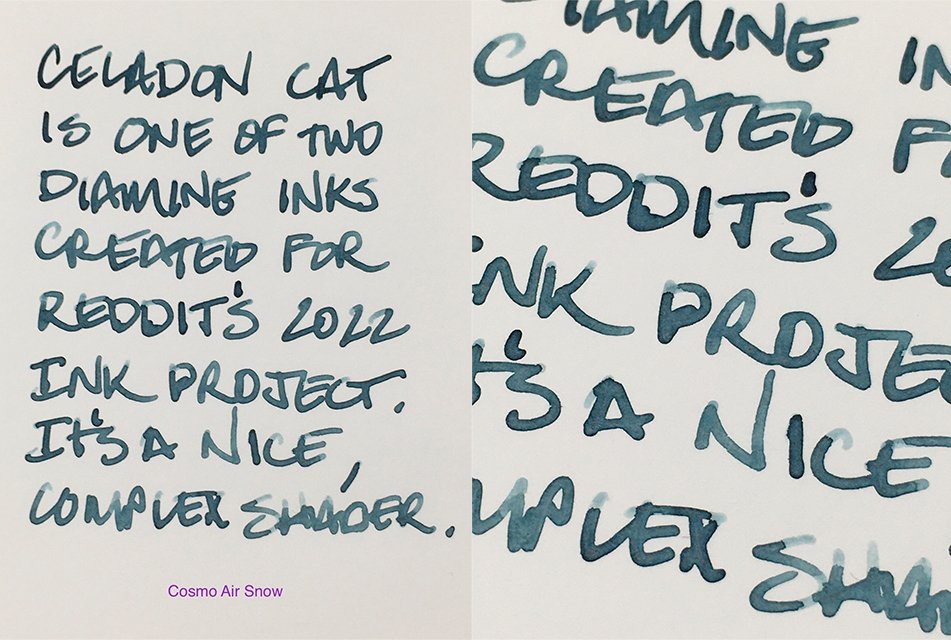 CELADON CAT
IS ONE OF TWO
DIAMINE INKS
CREATED FOR
REDDIT'S 2022
INK PROJECT.
IT'S A NICE,
COMPLEX SHADER.
Cosmo Air Snow
DIAMINE IN
CREATED F
REDDIT'S 20
INK PROJEC
IT'S A NICE
MPLEX SHAD